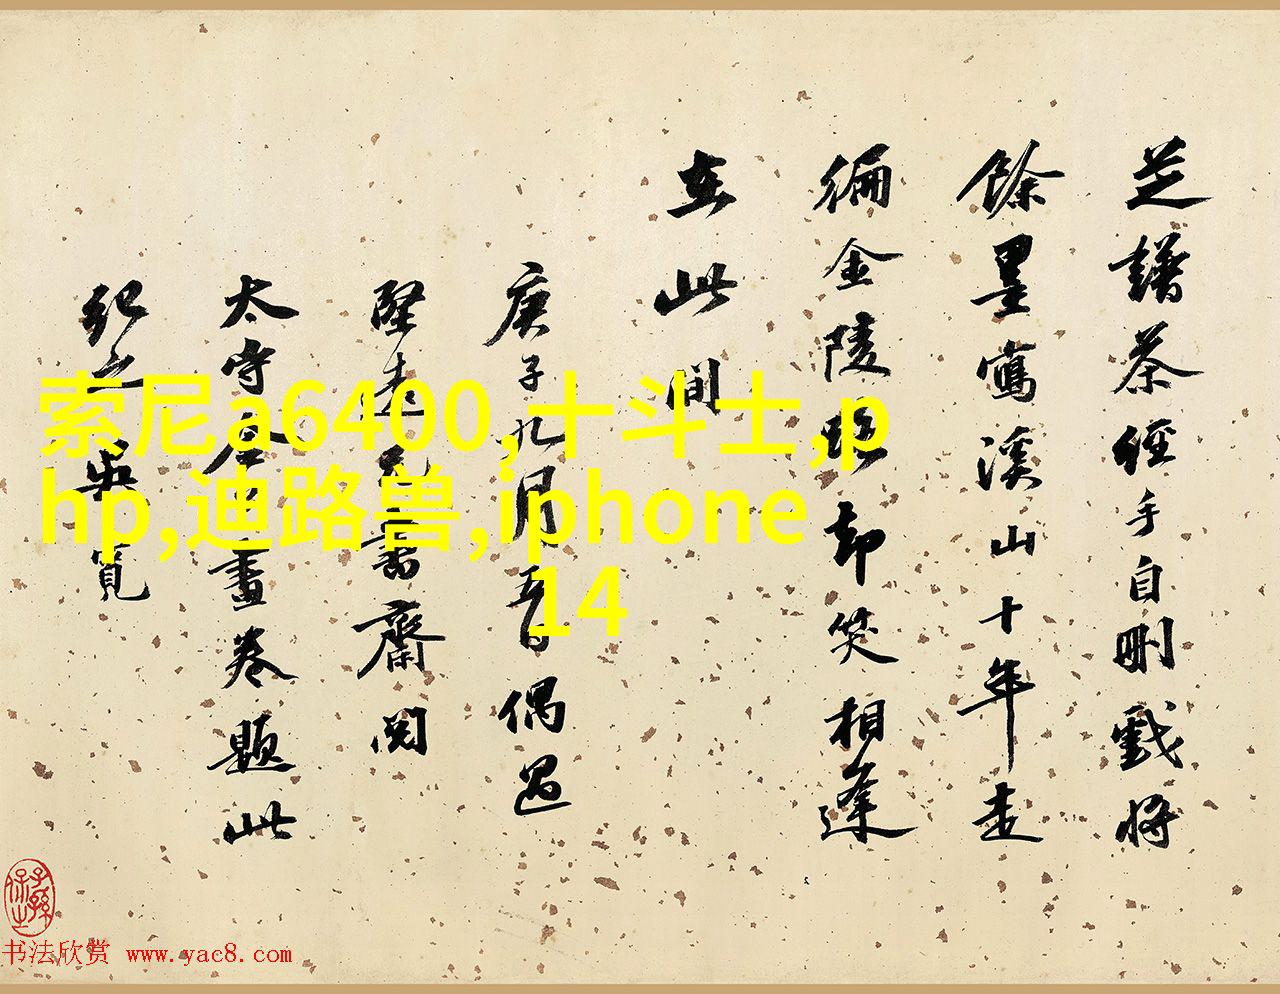 芝譜茶經手自刪戲將
餘墨寫溪山十年走
徧金陵却笑相逢
在此間
庚子九月偶過
堅遠書齋閱
太守公畫卷題此
紀之吳寬
索尼a6400,十斗士,p
hp,迪路兽,iphone
14
书法欣赏 www.yac8.com